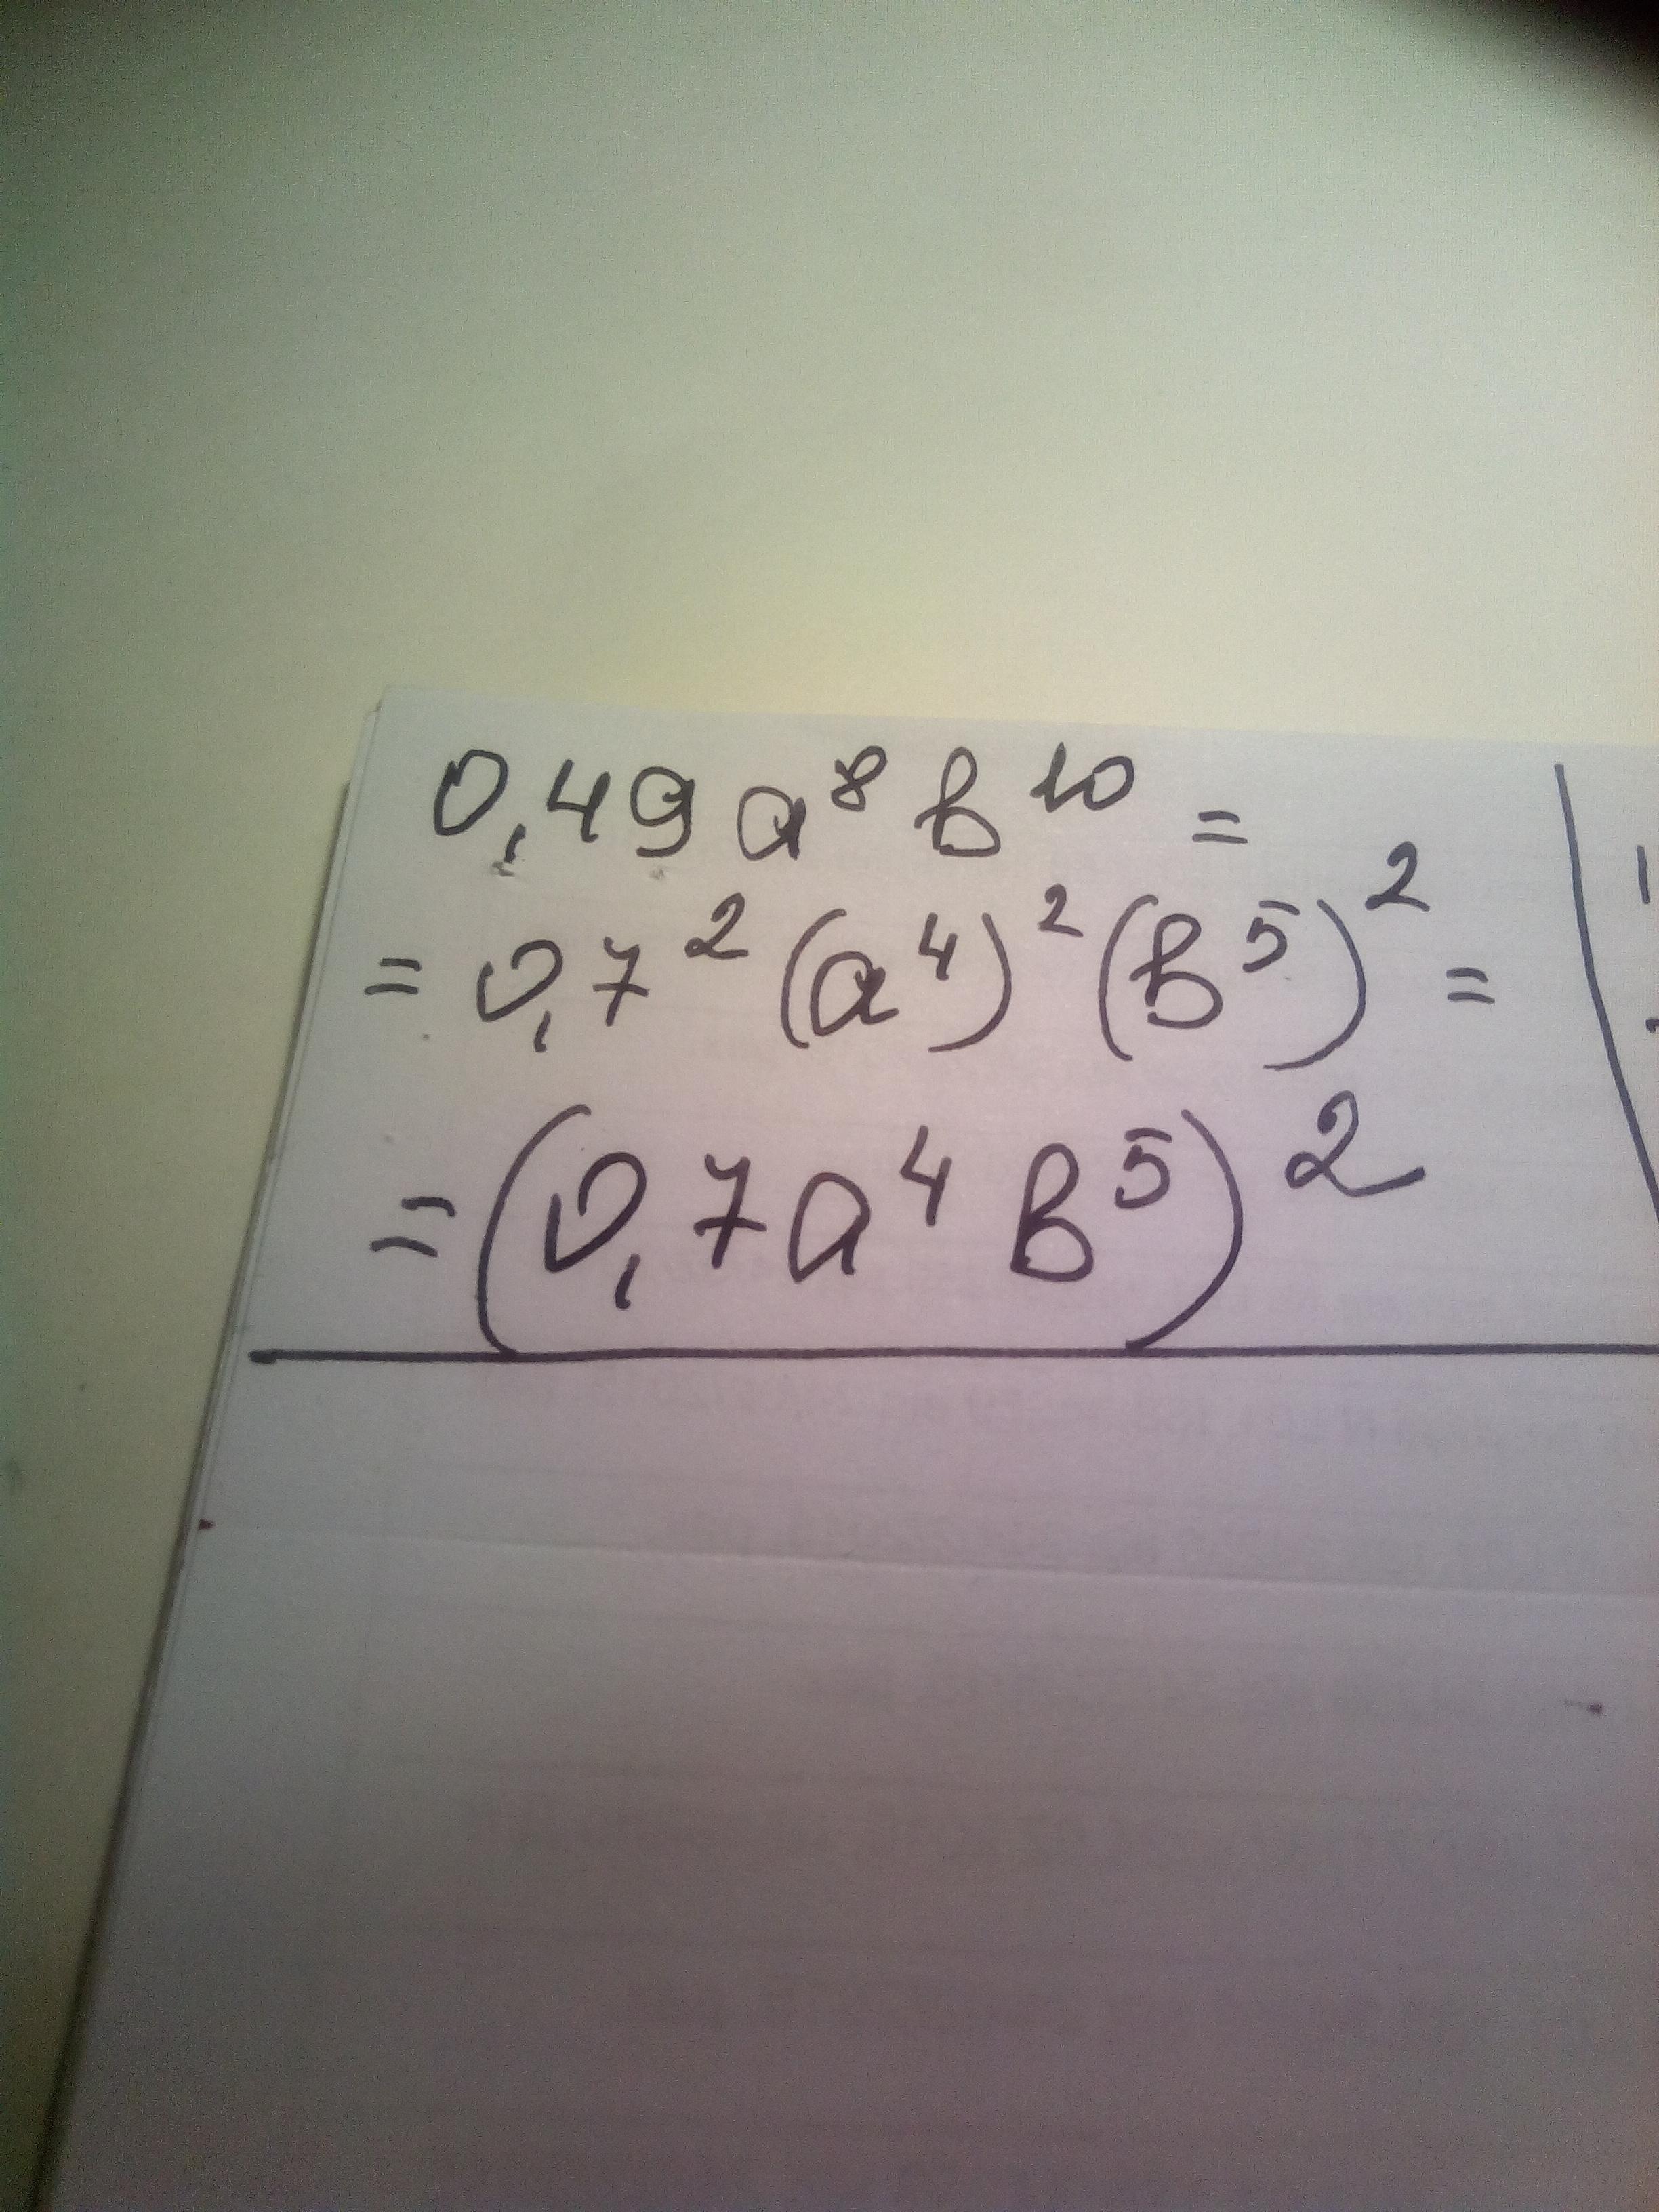 0,49a⁸b¹⁰ =
= 0,7²(a⁴)²(b⁵)² =
= (0,7a⁴b⁵)²